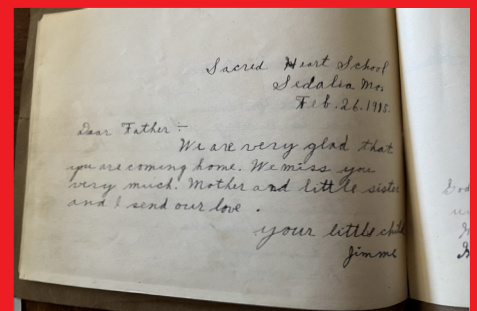 Sacred Heart School
Sedalia Mo.
Feb. 26. 1915.
Dear Father :-
We are very glad that
you are coming home. We miss you
very much. Mother and little sister
and I send our love .
your little child
Jimme